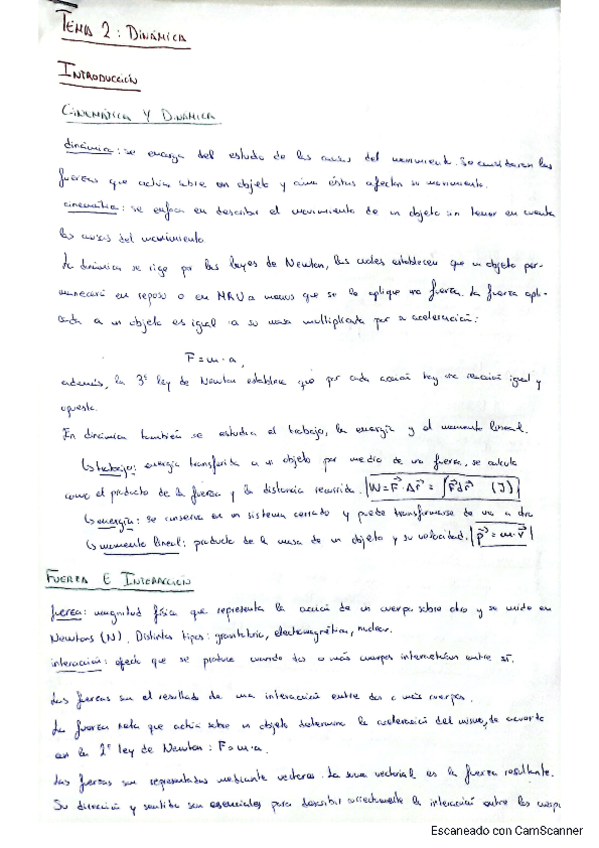 TEMA 2: DINÁMICA
INTRODUCCIÓN
CINEMÁTICA Y DINÁMICA
dinámica: se encarga del estudio de las causas del movimiento. Se consideran las
fuerzas que actúan sobre un objeto y cómo éstas afectan su movimiento.
cinemática: se enfoca en describir el movimiento de un objeto sin tener en cuenta
las causas del movimiento.
La dinámica se rige por las leyes de Newton, las cuales establecen que un objeto per-
manecerá en reposo o en MRU a menos que se le aplique una fuerza. La fuerza apli-
cada a un objeto es igual a su masa multiplicada por su aceleración:
F = m · a,
además, la 3ª ley de Newton establece que por cada acción hay una reacción igual y
opuesta.
En dinámica también se estudia el trabajo, la energía y el momento lineal.
↳ trabajo: energía transferida a un objeto por medio de una fuerza, se calcula
como el producto de la fuerza y la distancia recorrida. W = F⃗ · Δr⃗ = ∫F⃗dr⃗ (J)
↳ energía: se conserva en un sistema cerrado y puede transformarse de una a otra
↳ momento lineal: producto de la masa de un objeto y su velocidad. p⃗ = m · v⃗
FUERZA E INTERACCIÓN
fuerza: magnitud física que representa la acción de un cuerpo sobre otro y se mide en
Newtons (N). Distintos tipos: gravitatoria, electromagnética, nuclear.
interacción: efecto que se produce cuando dos o más cuerpos interactúan entre sí.
Las fuerzas son el resultado de una interacción entre dos o más cuerpos.
La fuerza neta que actúa sobre un objeto determina la aceleración del mismo, de acuerdo
en la 2ª ley de Newton: F = m · a.
Las fuerzas son representadas mediante vectores. La suma vectorial es la fuerza resultante.
Su dirección y sentido son esenciales para describir correctamente la interacción entre los cuerp
Escaneado con CamScanner